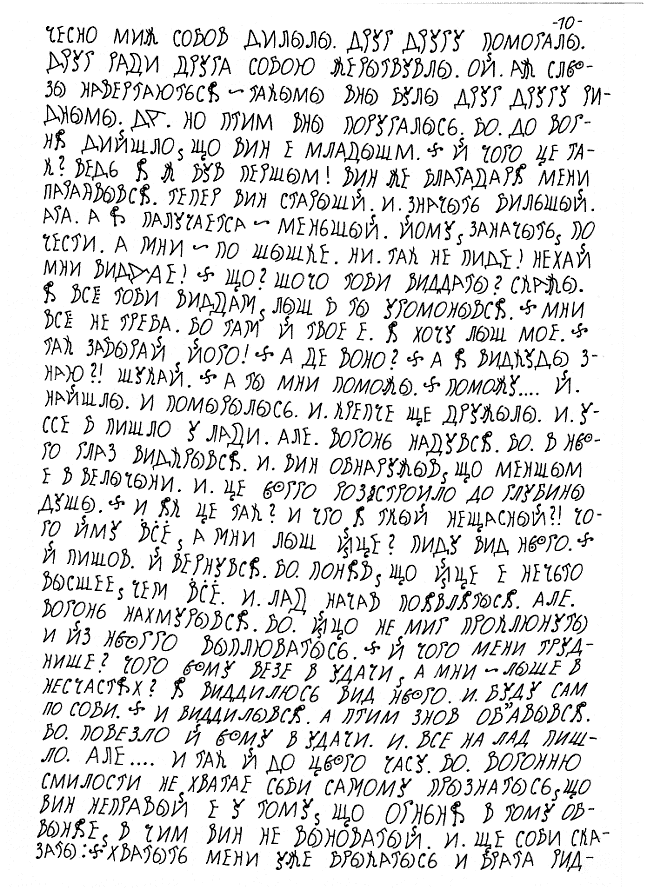 -10-
ЧЕСНО МИЖ СОБОВ ДИЛЫЛЫ. ДРУГ ДРУГУ ПОМОГАЛЫ.
ДРУГ РАДИ ДРУГА СОБОЮ ЖЕРЫТВУВЛЫ. ОЙ. АЖ СЛЬО-
ЗЫ НАВЕРТАЮТЬСЯ ~ ТАКЫМЫ ВНЫ БУЛЫ ДРУГ ДРУГУ РИ-
ДНЫМЫ. ДА. НО ПТИМ ВНЫ ПОРУГАЛЫСЬ. БО. ДО ВОГ-
НЯ ДИЙШЛО, ЩО ВИН Е МЛАДШЫМ. Й ЧОГО ЦЕ ТА-
К? ВЕДЬ Я Ж БУВ ПЕРШЫМ! ВИН ЖЕ БЛАГАДАРЯ МЕНИ
ПАГАНЯВСЯ. ТЕПЕР ВИН СТАРШЫЙ. И. ЗНАЧЫТЬ БИЛЬШЫЙ.
АГА. А Я ПАЛУЧАЕТСА ~ МЕНЬШЫЙ. ЙОМУ, ЗАНАЧЫТЬ, ПО
ЧЕСТИ. А МНИ ~ ПО ШЫШКЕ. НИ. ТАК НЕ ПИДЕ! НЕХАЙ
МНИ ВИДДАЕ! ЩО? ШОЧО ТОБИ ВИДДАТЫ? СКАЖЫ.
Я ВСЁ ТОБИ ВИДДАМ, ЛЫШ Б ТЫ УГОМОНЫВСЯ. МНИ
ВСЁ НЕ ТРЕБА. БО ТАМ Й ТВОЕ Е. Я ХОЧУ ЛЫШ МОЕ.
ТАК ЗАБЫРАЙ ЙОГО! А ДЕ ВОНО? А Я ВИДКУДЫ З-
НАЮ?! ШУКАЙ. А ТЫ МНИ ПОМОЖЫ. ПОМОЖУ.... Й.
НАЙШЛЫ. И ПОМЫРЫЛЫСЬ. И. КРЕПЧЕ ЩЕ ДРУЖЫЛЫ. И. У-
ССЕ Б ПИШЛО У ЛАДИ. АЛЕ. ВОГОНЬ НАДУВСЯ. БО. В НЬО-
ГО ГЛАЗ ВИДКРЫВСЯ. И. ВИН ОБНАРУЖЫВ, ЩО МЕНШЫМ
Е В ВЕЛЫЧЫНИ. И. ЦЕ ЬОГГО РОЗЗСТРОИЛО ДО ГЛУБИНЫ
ДУШЫ. И ЯК ЦЕ ТАК? И ЧТО Я ТКЫЙ НЕЩАСНЫЙ?! ЧО-
ГО ЙМУ ВСЁ, А МНИ ЛЫШ ЙЙЦЕ? ПИДУ ВИД НЬОГО.
Й ПИШОВ. Й ВЕРНУВСЯ. БО. ПОНЯВ, ЩО ЙЙЦЕ Е НЕЧЫТО
ВЫСШЕЕ, ЧЕМ ВСЁ. И. ЛАД НАЧАВ ПОЯВЛЯТЫСЯ. АЛЕ.
ВОГОНЬ НАХМУРЫВСЯ. БО. ЙЙЦО НЕ МИГ ПРОКЛЮНУТЫ
И ЙЗ НЬОГГО ВЫПЛЮВАТЫСЬ. Й ЧОГО МЕНИ ТРУД-
НИШЕ? ЧОГО ЬОМУ ВЕЗЕ В УДАЧИ, А МНИ ~ ЛЫШЕ В
НЕСЧАСТЯХ? Я ВИДДИЛЮСЬ ВИД НЬОГО. И. БУДУ САМ
ПО СОБИ. И ВИДДИЛЫВСЯ. А ПТИМ ЗНОВ ОБ"АВЫВСЯ.
БО. ПОВЕЗЛО Й ЬОМУ В УДАЧИ. И. ВСЕ НА ЛАД ПИШ-
ЛО. АЛЕ.... И ТАК Й ДО ЦЬОГО ЧАСУ. БО. ВОГОННЮ
СМИЛОСТИ НЕ ХВАТАЕ СЬБИ САМОМУ ПРЫЗНАТЫСЬ, ЩО
ВИН НЕПРАВЫЙ Е У ТОМУ, ЩО ОГНЫНЯ В ТОМУ ОБ-
ВЫНЯЕ, В ЧИМ ВИН НЕ ВЫНОВАТЫЙ. И. ЩЕ СОБИ СКА-
ЗАТЫ: ХВАТЫТЬ МЕНИ УЖЕ БРЫКАТЫСЬ И БРАТА РИД-